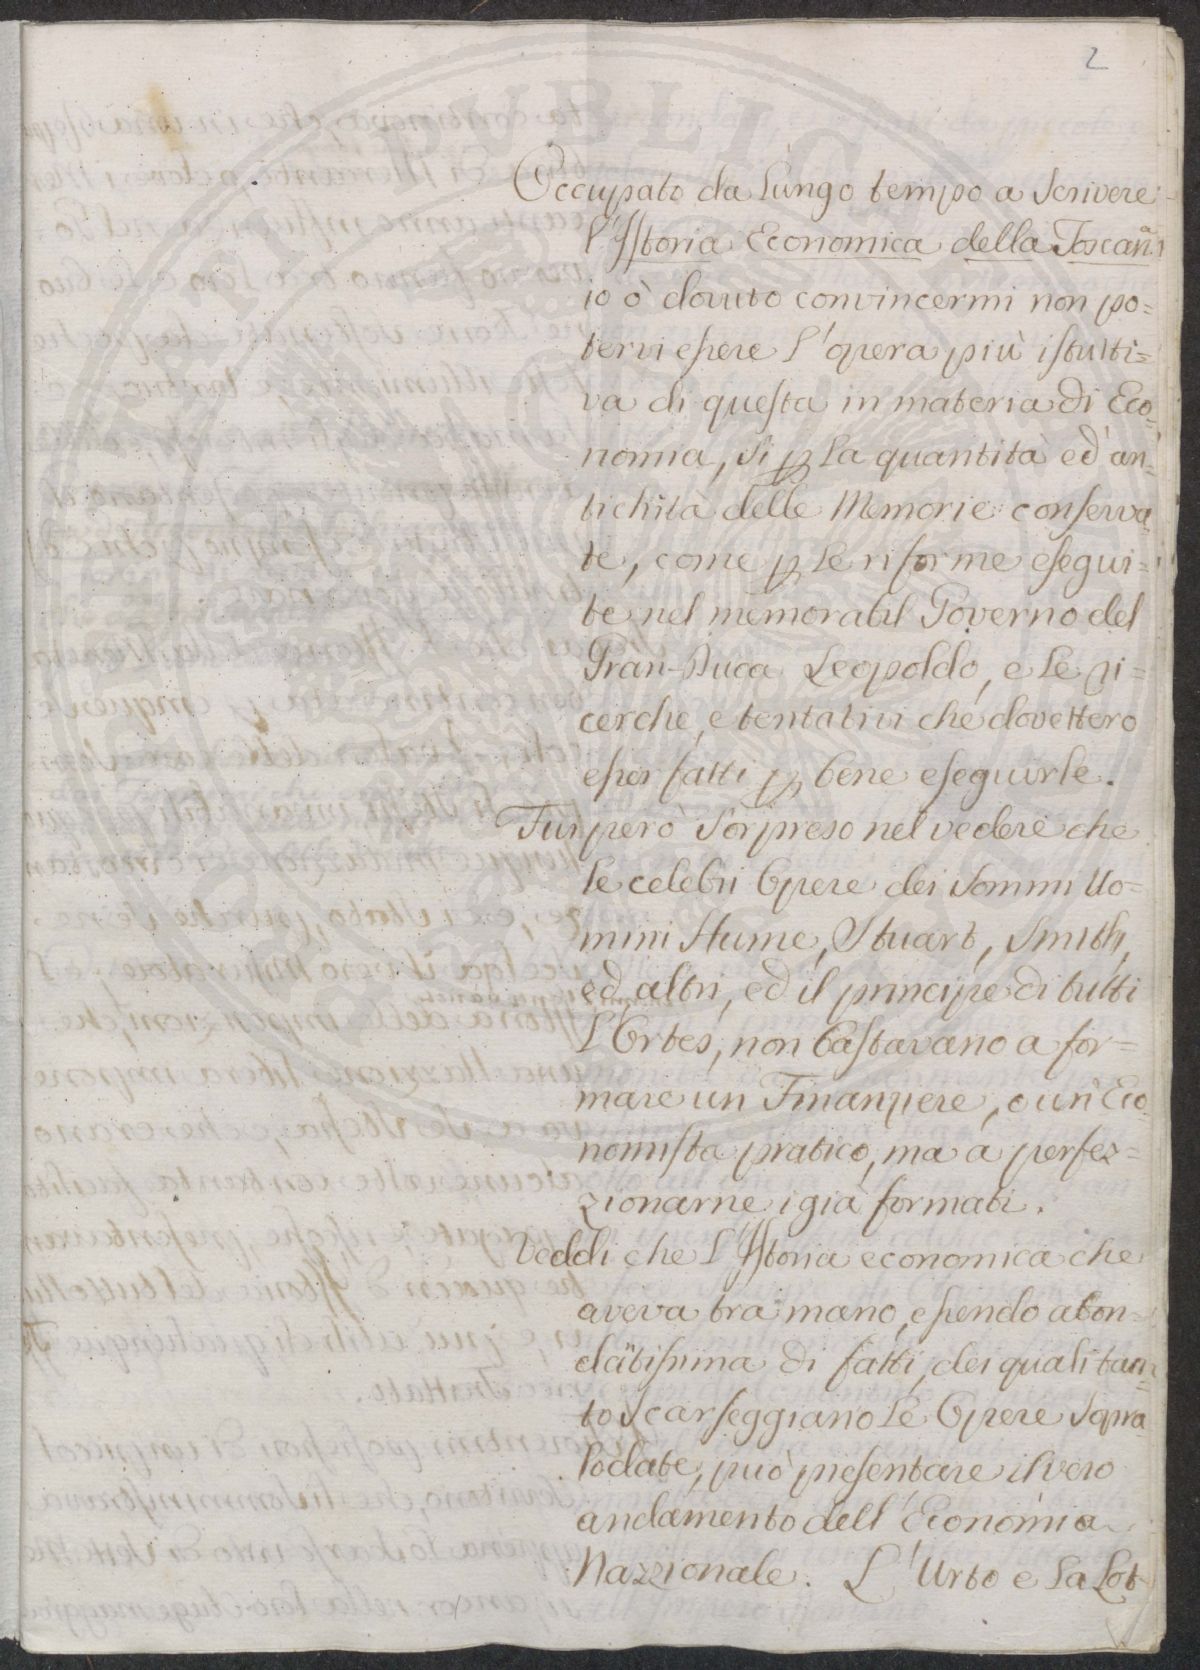 2
Occupato da lungo tempo a scrivere
l'Istoria Economica della Toscana
io ò dovuto convincermi non po=
tervi essere l'opera più istrutti=
va di questa in materia di Eco=
nomia, sì p la quantità ed an=
tichità delle Memorie conserva=
te, come p le riforme esegui=
te nel memorabil Governo del
Gran-Duca Leopoldo, e le ri=
cerche, e tentativi che dovettero
esser fatti p bene eseguirle.
Fui però sorpreso nel vedere che
le celebri Opere dei sommi Uo=
mini Hume, Stuart, Smith,
ed altri, ed il principe di tutti
l'Ortes, non bastavano a for=
mare un Finanziere, o un Eco=
nomista pratico, ma a perfez=
zionarne i già formati.
Veddi che l'Istoria economica che
aveva tra mano, essendo abon=
dãtissima di fatti, dei quali tan=
to scarseggiano le Opere sopra
lodate, può presentare il vero
andamento dell'Economia
Nazzionale. L'Urto e la Lot=